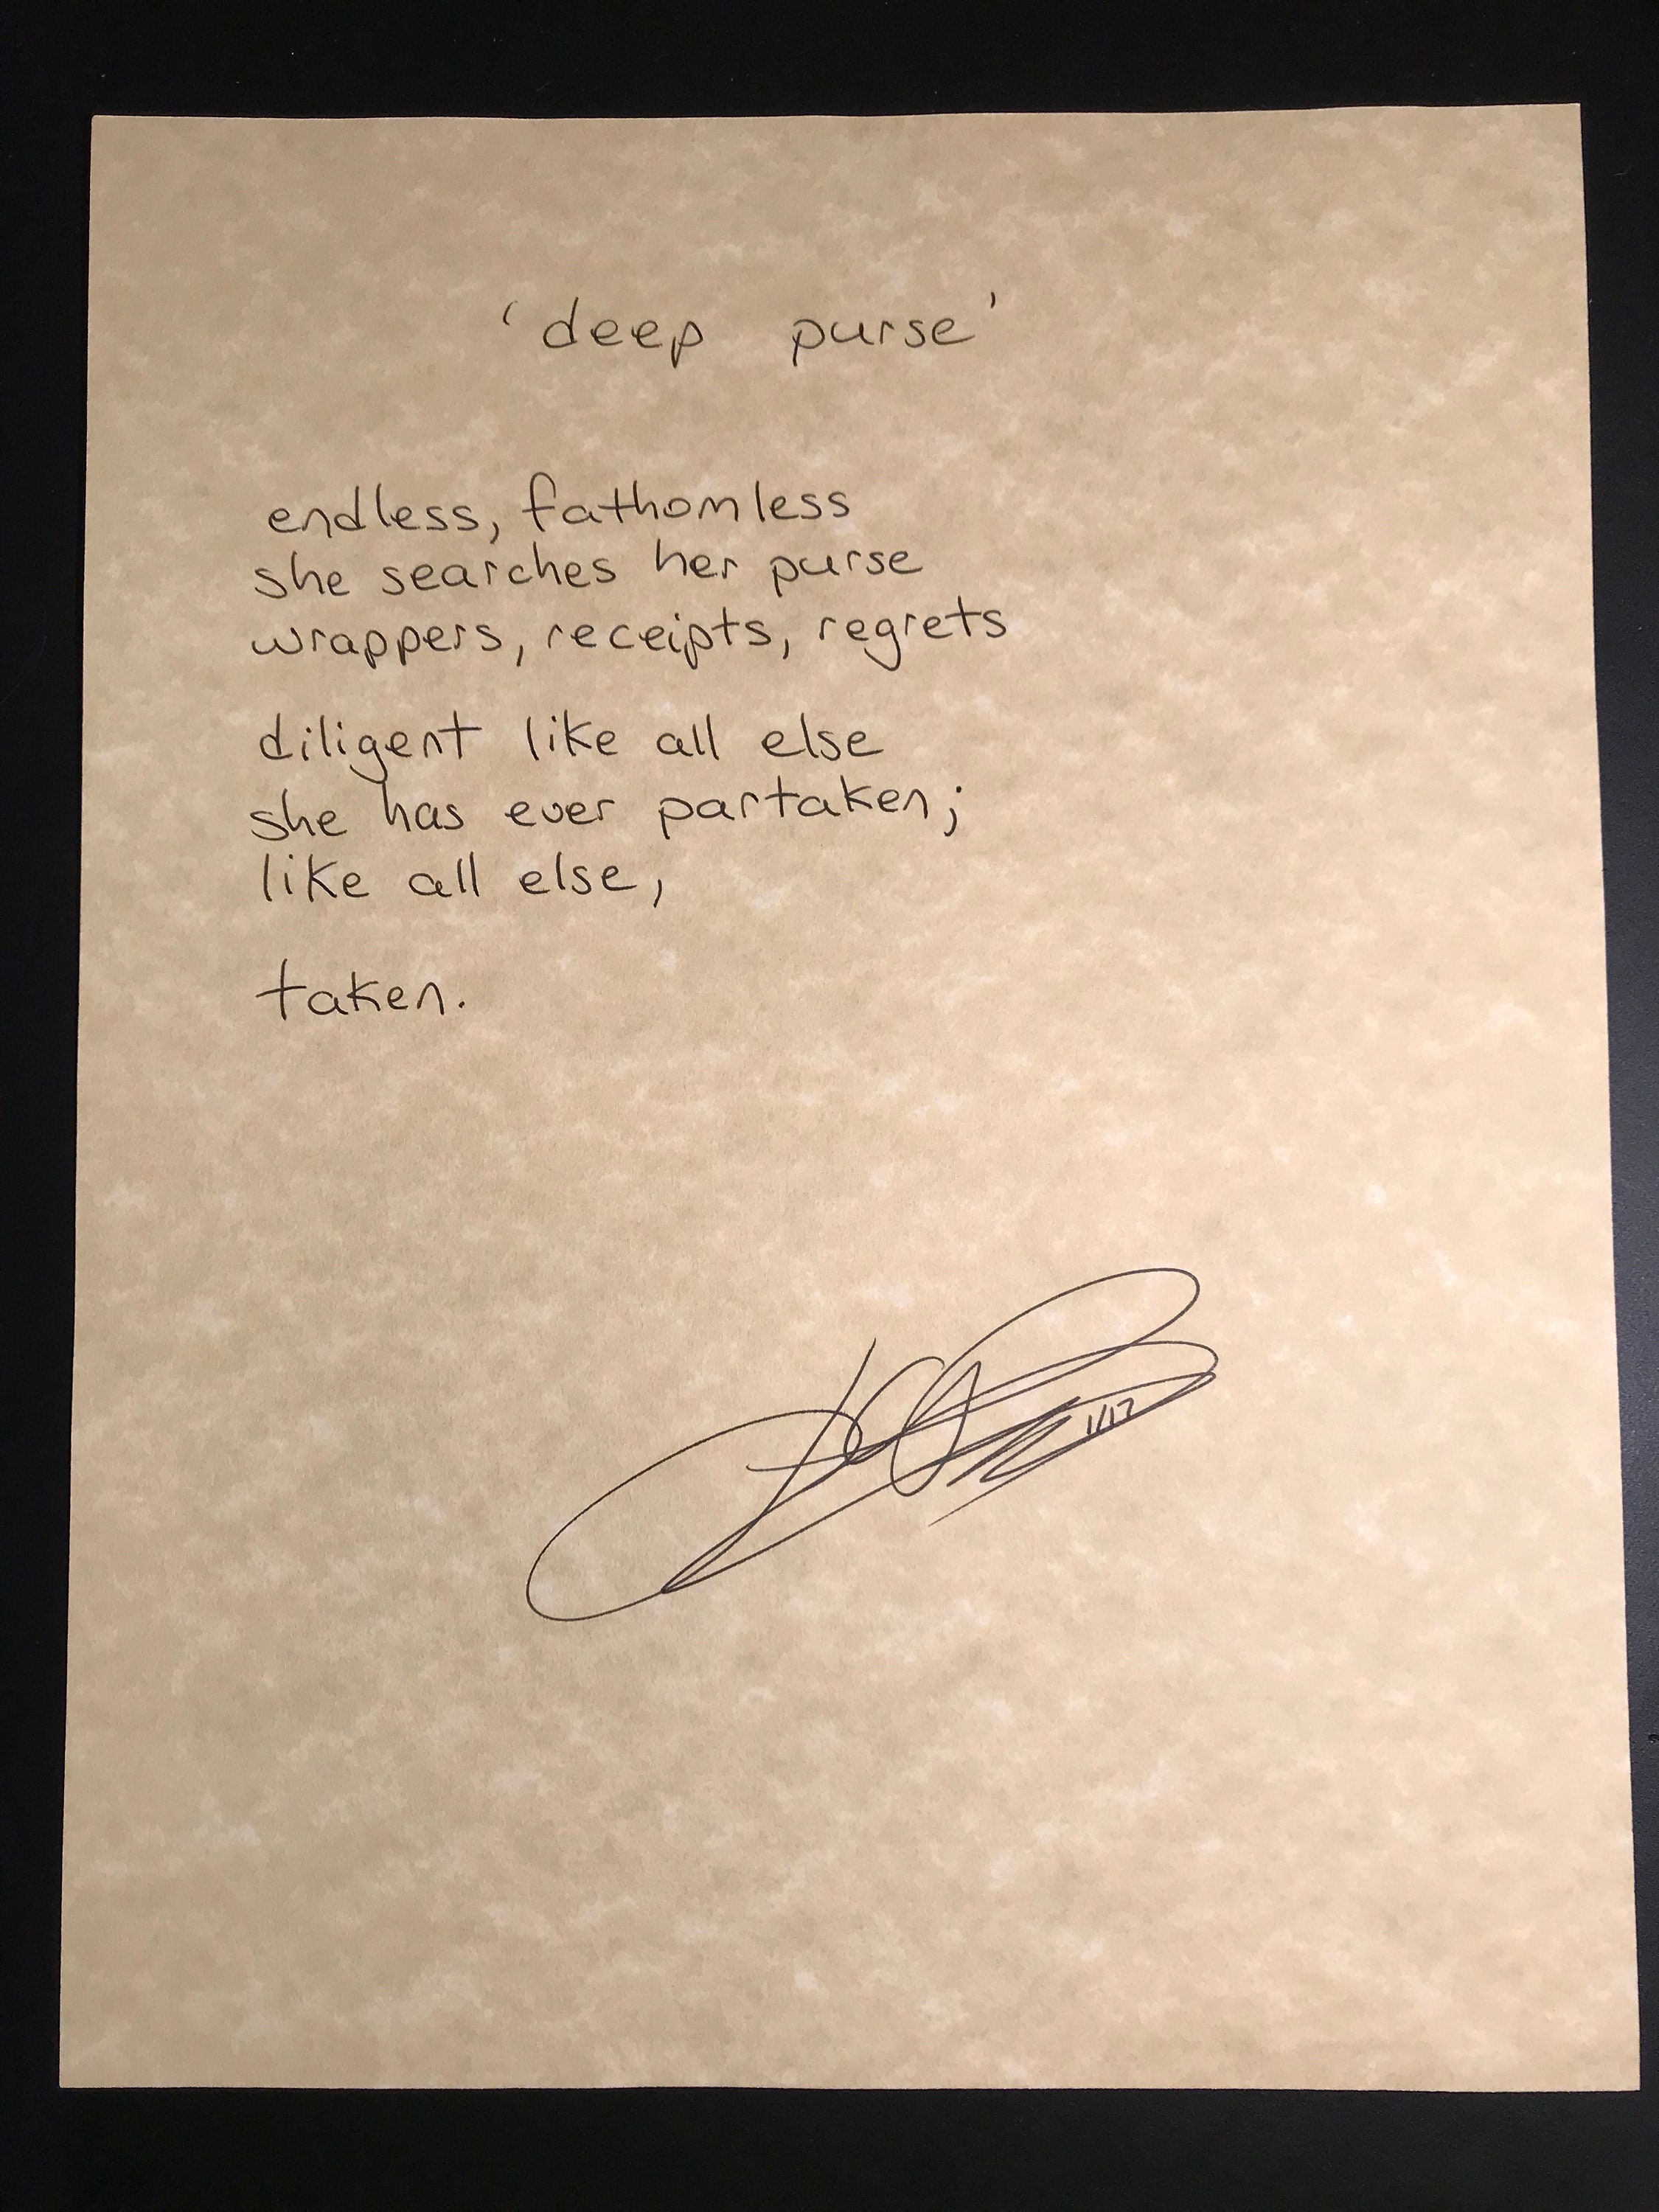 'deep purse'
endless, fathomless
she searches her purse
wrappers, receipts, regrets
diligent like all else
she has ever partaken;
like all else,
taken.
1/17